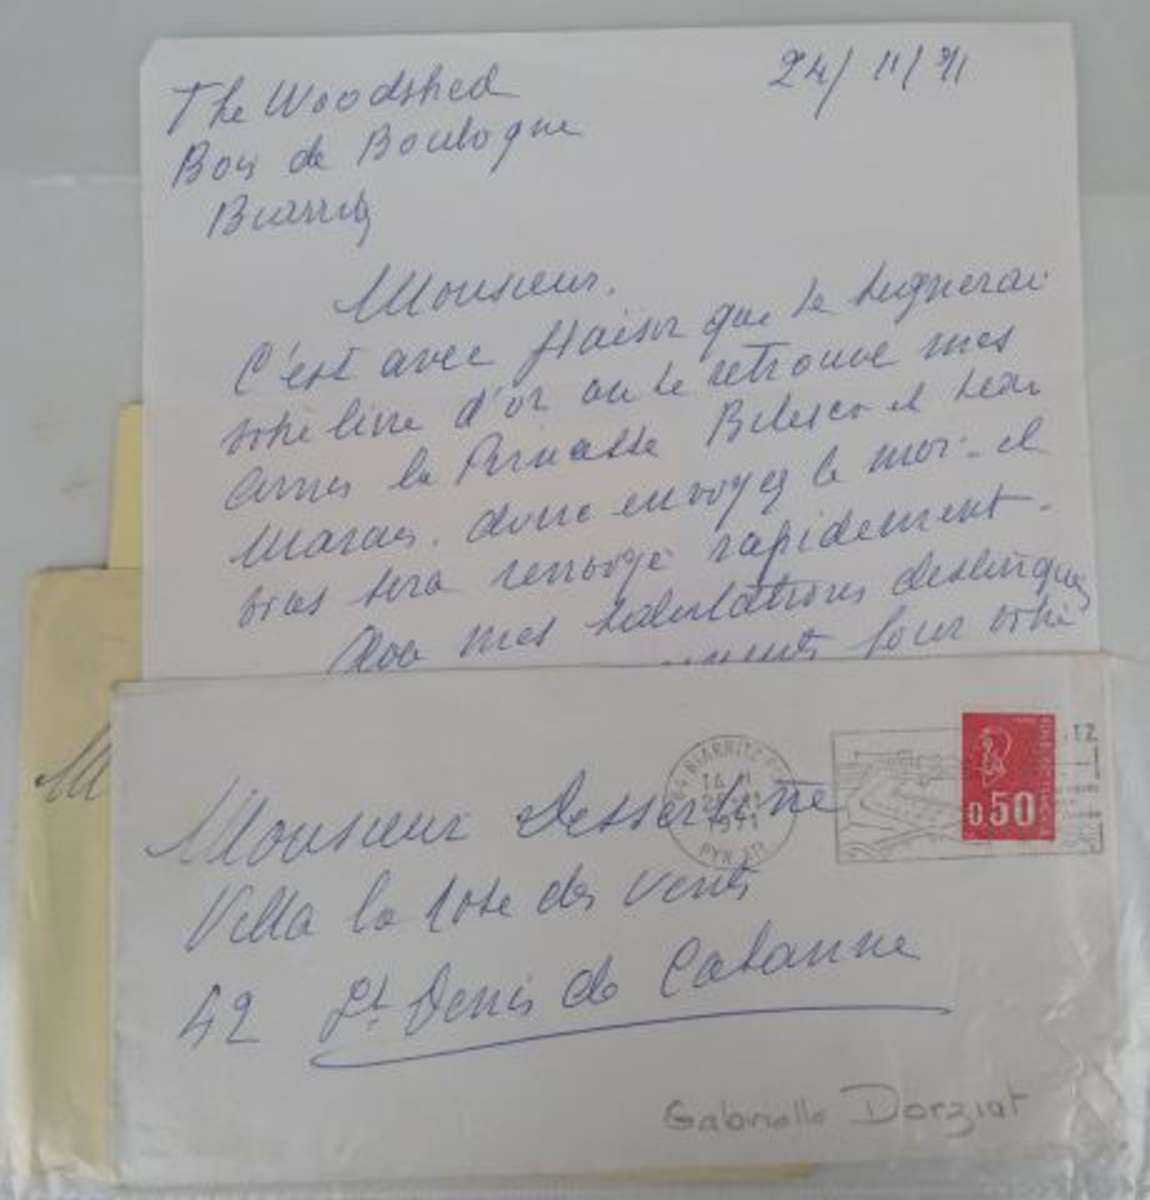 The Woodshed
24/11/71
Bois de Boulogne
Biarritz
Monsieur.
C'est avec plaisir que je signerai
votre livre d'or ou je retrouve mes
amies la Princesse Bibesco et Jean
Marais. donc envoyez le moi - il
vous sera renvoyé rapidement.
mes salutations distingués
pour votre
Monsieur Dessertine
Villa la rose des vents
42 St Denis de Cabanne
BIARRITZ
1971
PYR. ATL.
0.50
TZ
Gabrielle Dorziat
M